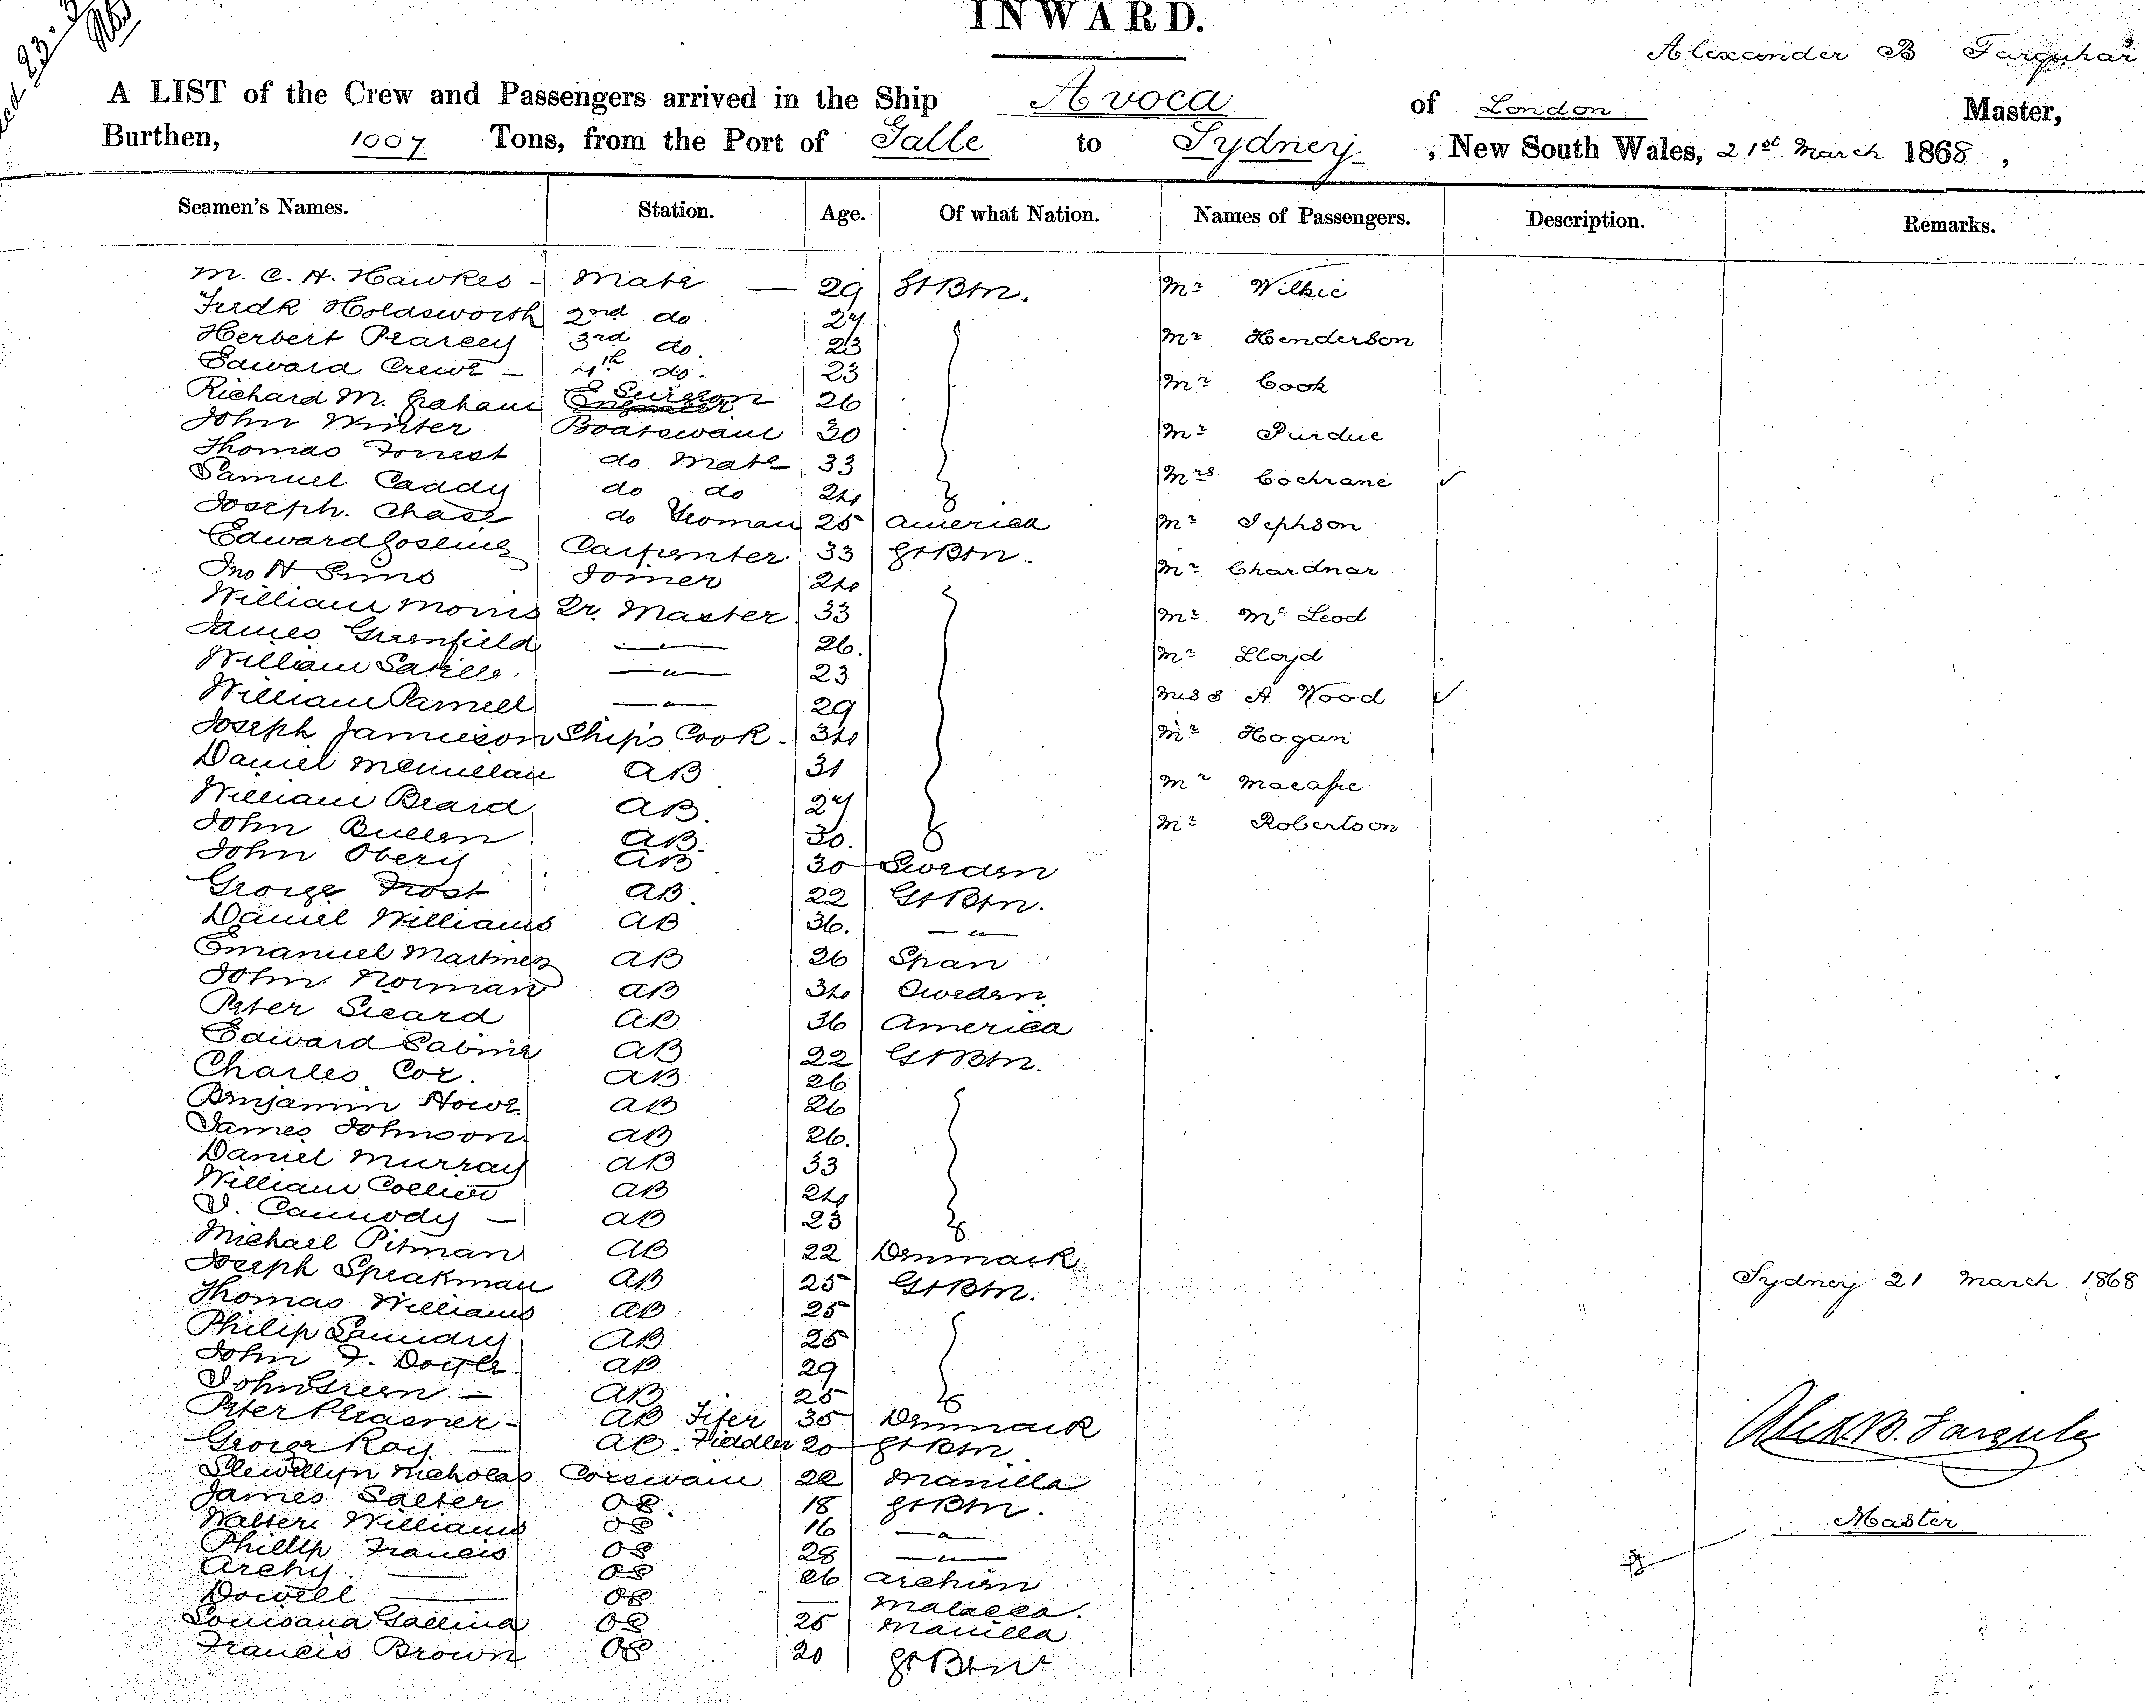 INWARD.
Alexander B Farquhar
A LIST of the Crew and Passengers arrived in the Ship Avoca of London Master,
Burthen, 1007 Tons, from the Port of Galle to Sydney, New South Wales, 21st March 1868,
Seamen's Names. Station. Age. Of what Nation. Names of Passengers. Description. Remarks.
M. C. H. Hawkes - Mate — 29 Gt Btn. Mr Wilkie
Fredk Holdsworth 2nd do 27
Herbert Pearcey 3rd do. 23 Mr Henderson
Edward Crewe - 4th do. 23
Richard M. Graham Surgeon 26 Mr Cook
John Winter Boatswain 30 Mr Purdue
Thomas Forrest do Mate 33
Samuel Caddy do do 24 Mrs Cochrane ✓
Joseph. Chase do Yeoman 25 America Mr Jephson
Edward Carpenter 33 Gt Btn. Mr Chardnar
Jno H Sims Joiner 24
William Morris Qr. Master 33 Mr Mc Leod
James Greenfield —"— 26.
William Saville —"— 23 Mr Lloyd
William Parnell —"— 29 Miss A Wood ✓
Joseph Jamieson Ship's Cook 34 Mr Hogan
Daniel McMillan AB 31 Mr Macafie
William Beard AB. 27
John Bullen AB. 30. Mr Robertson
John Obery AB 30 Sweden
George Frost AB. 22 Gt Btn.
Daniel Williams AB 36. —"—
Emanuel Martinez AB 26 Span
John Norman AB 34 Sweden
Peter Sicard AB 36 America
Edward Sabine AB 22 Gt Btn.
Charles Cox. AB 26
Benjamin Howe AB 26
James Johnson AB 26.
Daniel Murray AB 33
William Collier AB 24
Carmody — AB 23
Michael Pitman AB 22 Denmark
Joseph Speakman AB 25 Gt Btn. Sydney 21 March 1868
Thomas Williams AB 25
Philip Saundry AB 25
John F. Doyle AB 29
John Green — AB 25
Peter - AB Fifer 35 Denmark
George Ray — AB. Fiddler 20 Gt Btn. Alex B. Farquhar
Llewellyn Nicholas Coxswain 22 Manilla
James Salter OS. 18 Gt Btn. Master
Walter Williams OS 16 —"—
Phillip Francis OS 28 —"—
Archy — OS 26
Dowell — OS — Malacca.
Louisana Gallina OS 25 Manilla
Francis Brown OS 20 Gt Btn